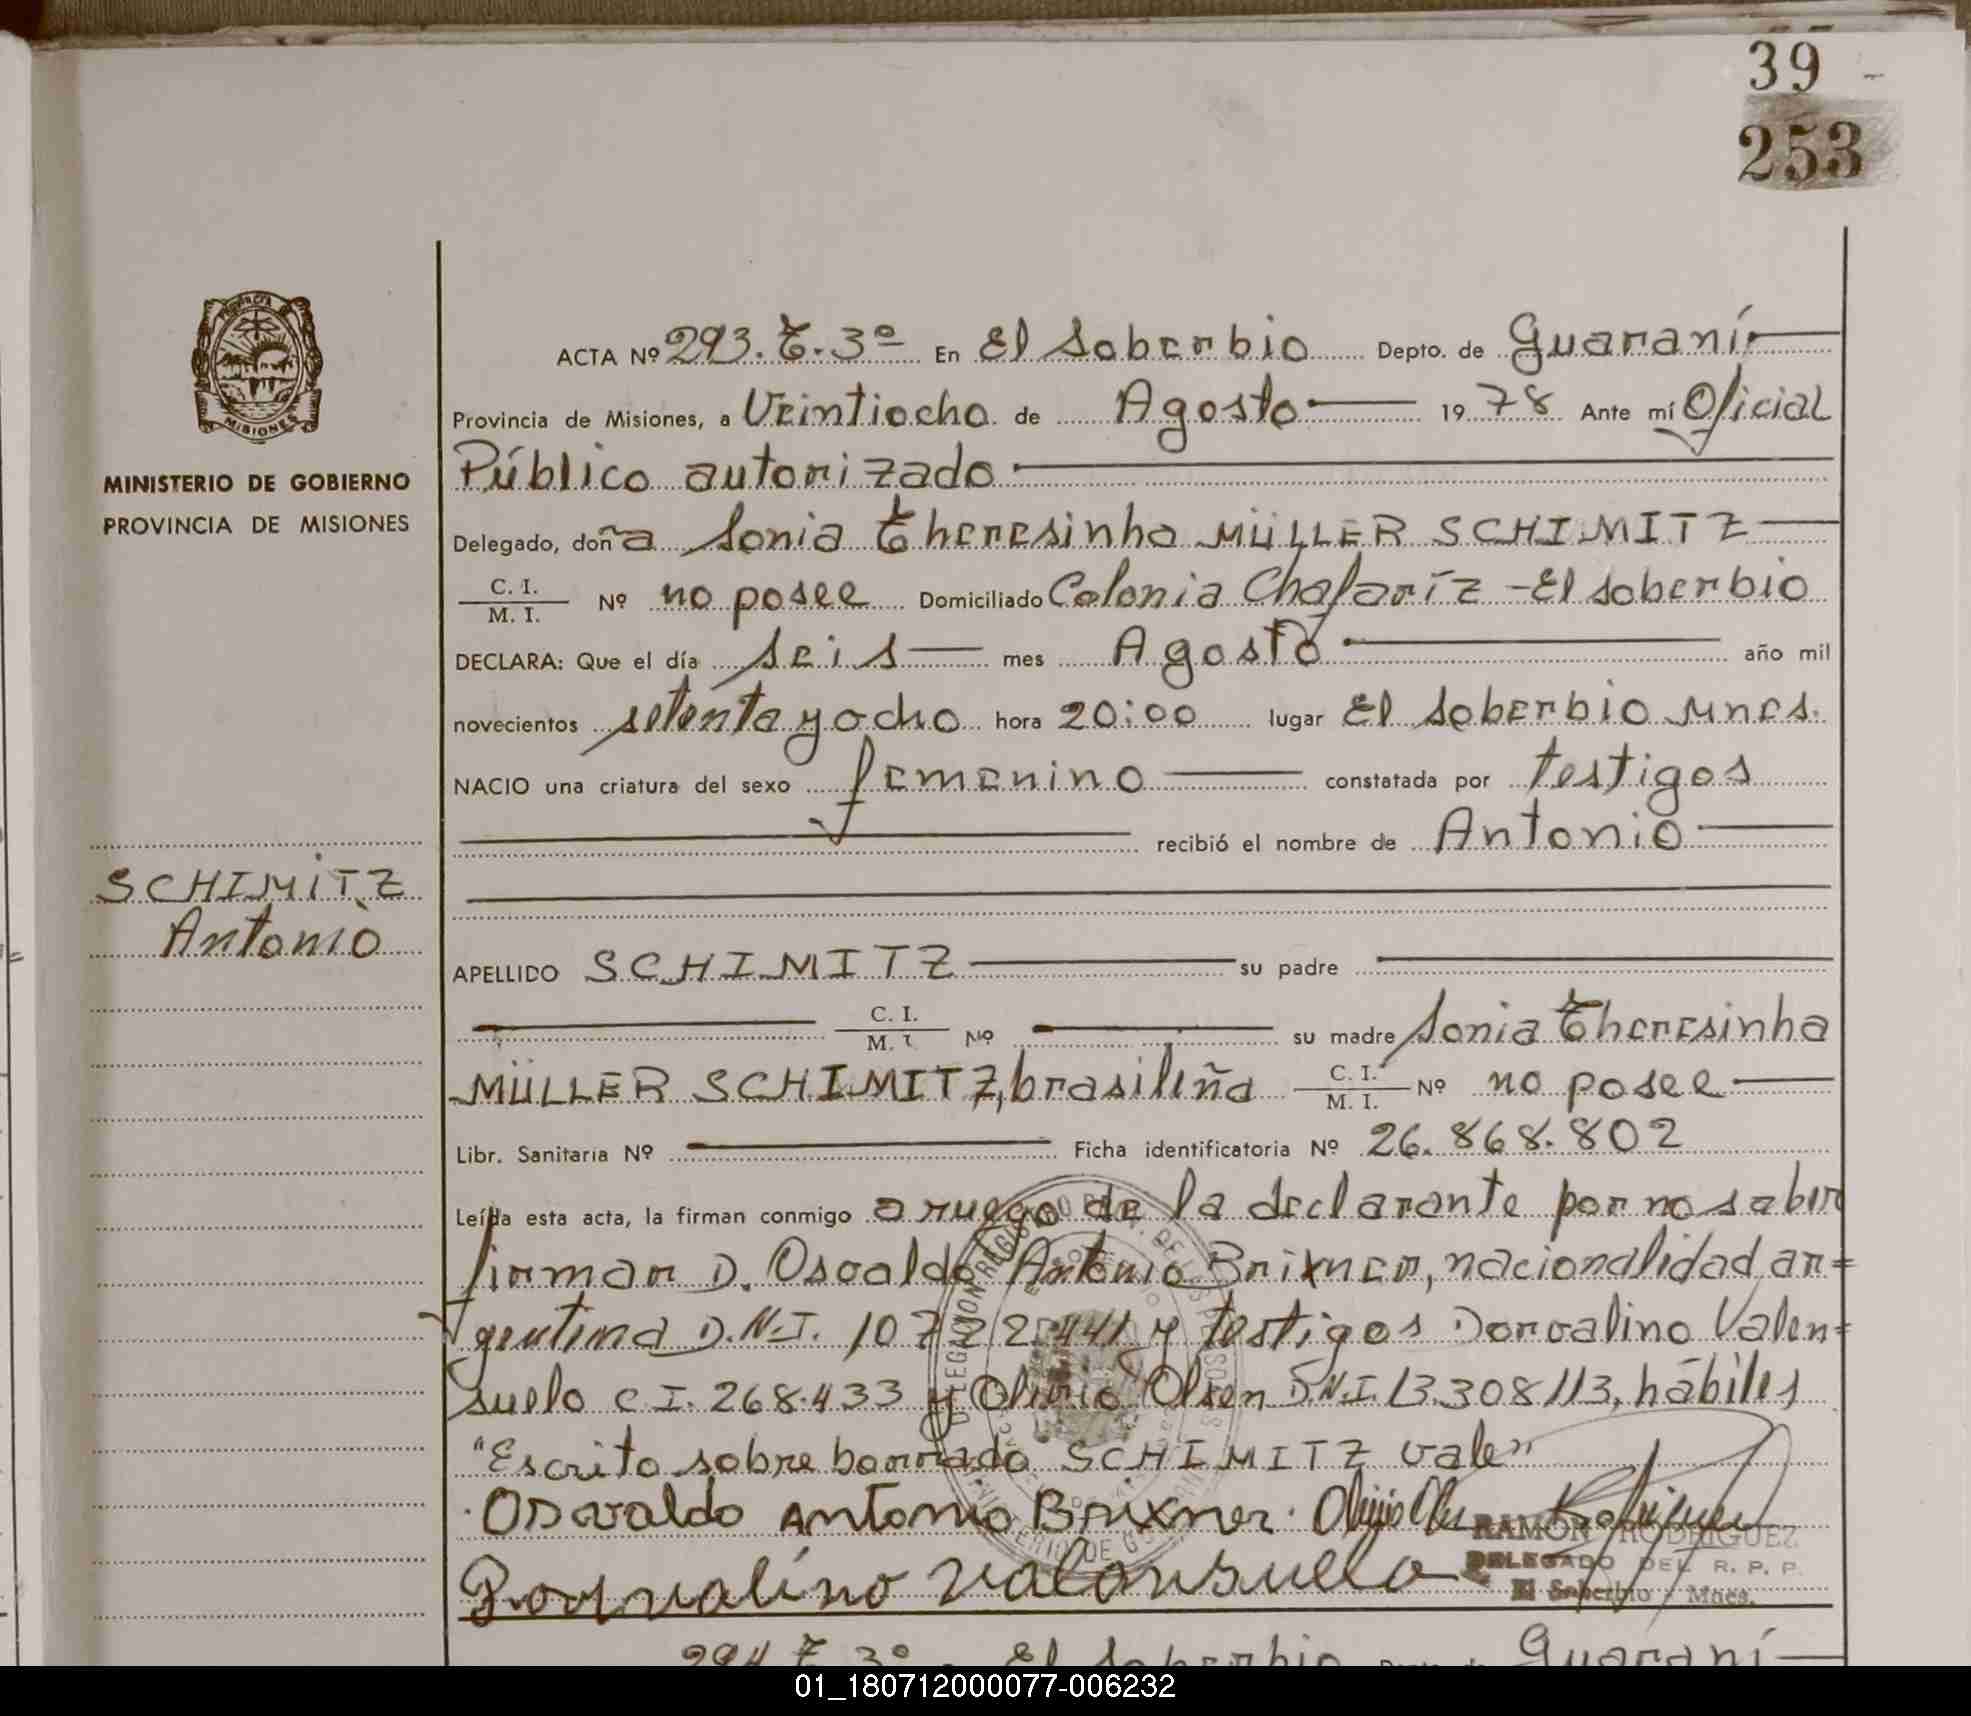 39 -
253
PROVINCIA
MISIONES
MINISTERIO DE GOBIERNO
PROVINCIA DE MISIONES
SCHIMITZ
Antonio
ACTA Nº 293. T. 3º En El Soberbio Depto. de Guaraní
Provincia de Misiones, a Veintiocho de Agosto 1978 Ante mí Oficial
Público autorizado
Delegado, doña Sonia Theresinha MÜLLER SCHIMITZ
C. I.
M. I. Nº no posee Domiciliado Colonia Chafaríz - El Soberbio
DECLARA: Que el día seis mes Agosto año mil
novecientos setenta y ocho hora 20:00 lugar El Soberbio Mnes.
NACIO una criatura del sexo femenino constatada por testigos
recibió el nombre de Antonio
APELLIDO SCHIMITZ su padre
C. I.
M. I. Nº su madre Sonia Theresinha
MÜLLER SCHIMITZ, brasileña C. I.
M. I. Nº no posee
Libr. Sanitaria Nº Ficha identificatoria Nº 26.868.802
Leída esta acta, la firman conmigo a ruego de la declarante por no saber
firmar D. Osvaldo Antonio Brixner, nacionalidad ar=
gentina D.N.I. 10722441 y testigos Dorvalino Valen=
suelo C I. 268.433 y Olivio Olsen D.N.I. 13.308113, hábiles
"Escrito sobre borrado SCHIMITZ vale"
Osvaldo Antonio Brixner.
RAMON RODRIGUEZ
DELEGADO DEL R. P. P.
El Soberbio - Mnes.
Dorvalino Valonsuelo
294 T. 3º El Soberbio Depto. de Guaraní
01_180712000077-006232